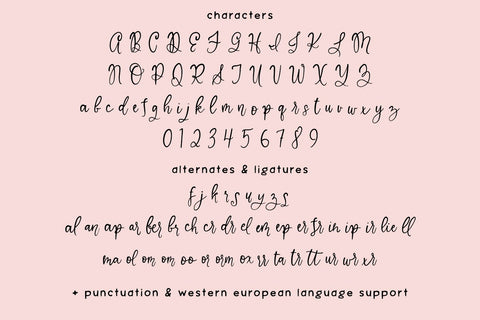 characters
A B C D E F G H I J K L M
N O P Q R S T U V W X Y Z
a b c d e f g h i j k l m n o p q r s t u v w x y z
0 1 2 3 4 5 6 7 8 9
alternates & ligatures
f j k r s u y z s
al an ap ar ber br ch cr dr el em ep er fr in ip ir lie ll
ma ol om om oo or orm ox rr ta tr tt ur wr xr
+ punctuation & western european language support